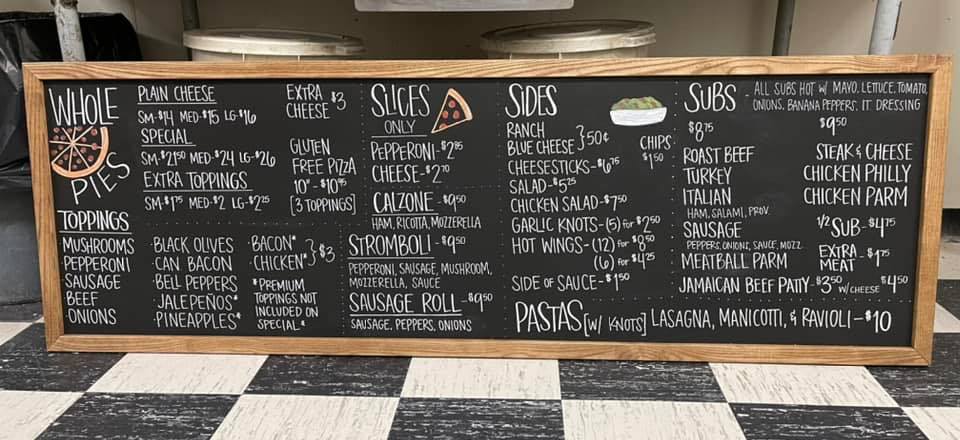 WHOLE
PIES
PLAIN CHEESE
SM-$14 MED-$15 LG-$16
SPECIAL
SM-$21⁵⁰ MED-$24 LG-$26
EXTRA TOPPINGS
SM-$1⁷⁵ MED-$2 LG-$2²⁵
EXTRA
CHEESE $3
GLUTEN
FREE PIZZA
10"-$10⁹⁵
[3 TOPPINGS]
TOPPINGS
MUSHROOMS
PEPPERONI
SAUSAGE
BEEF
ONIONS
·BLACK OLIVES
·CAN BACON
·BELL PEPPERS
·JALEPEÑOS*
·PINEAPPLES*
·BACON*
·CHICKEN* } $3
*PREMIUM
TOPPINGS NOT
INCLUDED ON
SPECIAL*
SLICES
ONLY
PEPPERONI-$2⁸⁵
CHEESE-$2⁷⁰
CALZONE-$9⁵⁰
HAM, RICOTTA, MOZZERELLA
STROMBOLI-$9⁵⁰
PEPPERONI, SAUSAGE, MUSHROOM,
MOZZERELLA, SAUCE
SAUSAGE ROLL-$9⁵⁰
SAUSAGE, PEPPERS, ONIONS
SIDES
RANCH
BLUE CHEESE } 50¢
CHIPS-
$1⁵⁰
CHEESESTICKS-$6⁷⁵
SALAD-$5²⁵
CHICKEN SALAD-$7⁵⁰
GARLIC KNOTS-(5) for $2⁵⁰
HOT WINGS-(12) for $8⁵⁰
(6) for $4²⁵
SIDE OF SAUCE-$1⁵⁰
SUBS
ALL SUBS HOT W/ MAYO, LETTUCE, TOMATO,
ONIONS, BANANA PEPPERS, IT. DRESSING
$8⁷⁵
ROAST BEEF
TURKEY
ITALIAN
HAM, SALAMI, PROV.
SAUSAGE
PEPPERS, ONIONS, SAUCE, MOZZ.
MEATBALL PARM
$9⁵⁰
STEAK & CHEESE
CHICKEN PHILLY
CHICKEN PARM
½ SUB-$4⁷⁵
EXTRA
MEAT-$1⁷⁵
JAMAICAN BEEF PATTY-$3⁵⁰ W/CHEESE $4⁵⁰
PASTAS [W/ KNOTS] LASAGNA, MANICOTTI, & RAVIOLI-$10